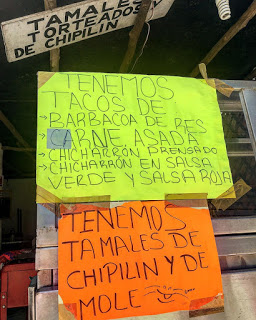 TAMALES
TORTEADOS Y
DE CHIPILIN
TENEMOS
TACOS DE
→BARBACOA DE RES
→CARNE ASADA
→CHICHARRÓN PRENSADO
→CHICHARRÓN EN SALSA
VERDE Y SALSA ROJA
TENEMOS
TAMALES DE
CHIPILIN Y DE
MOLE